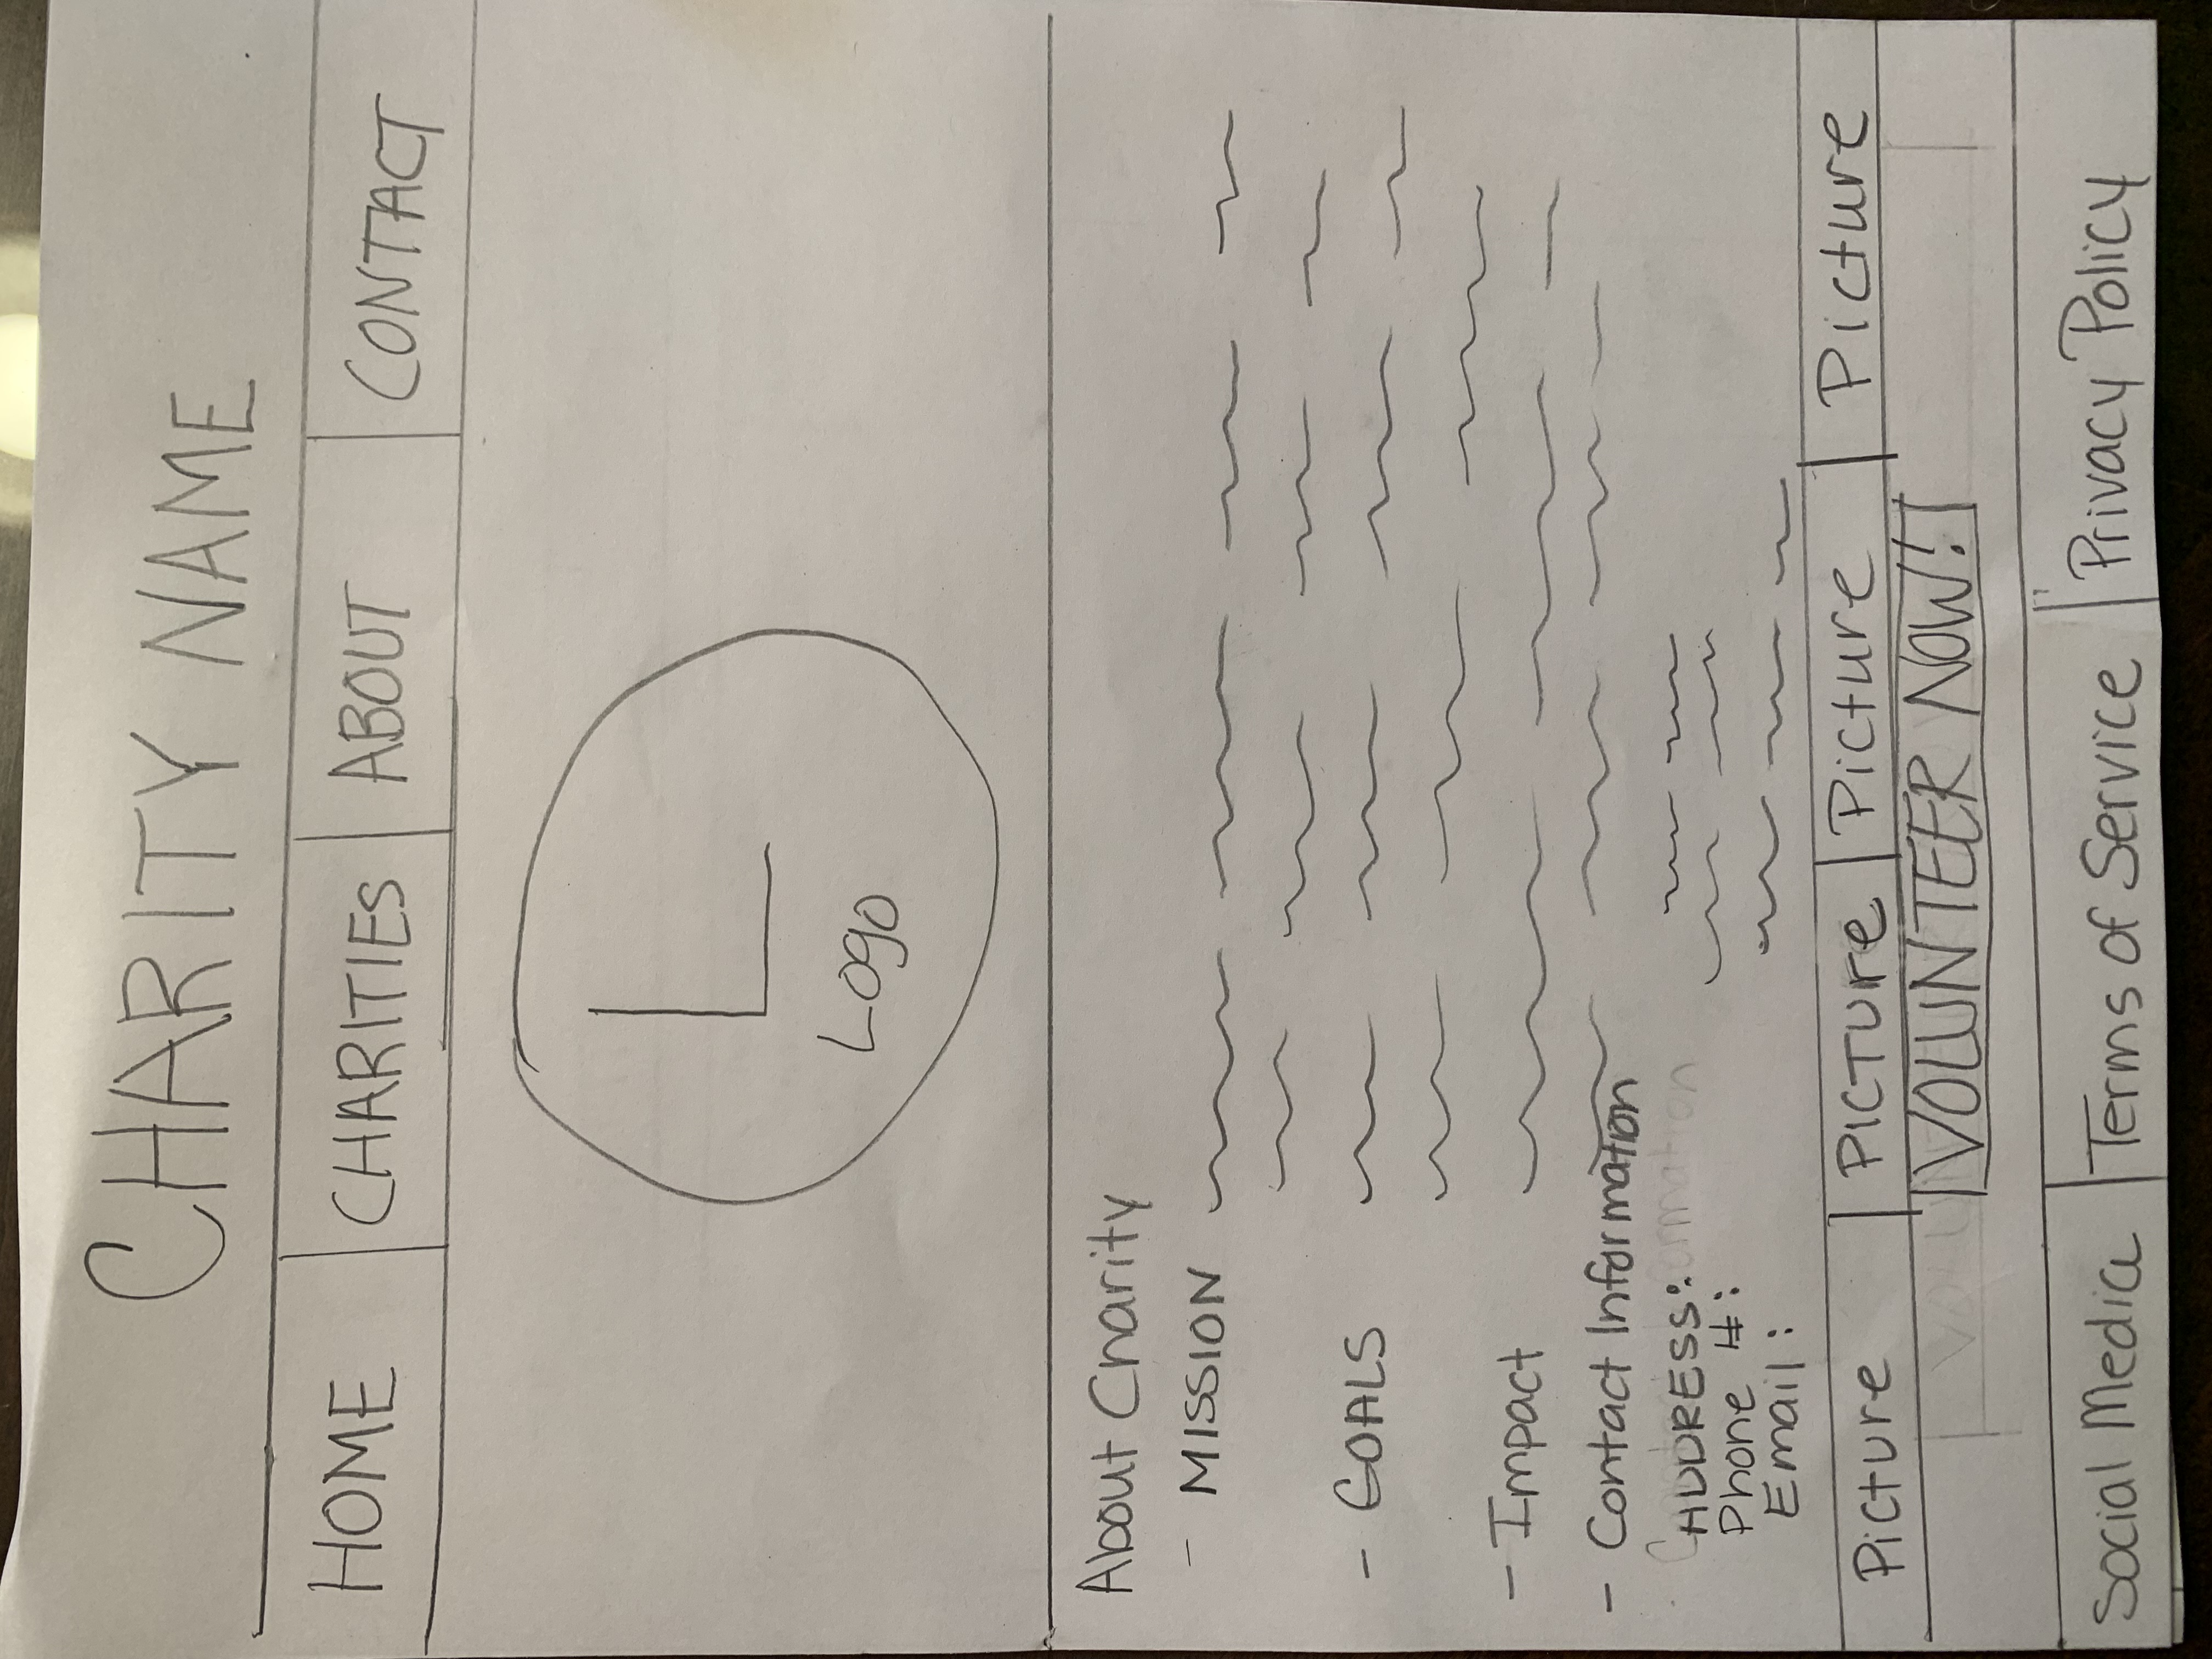 CHARITY NAME
HOME CHARITIES ABOUT CONTACT
L
Logo
About Charity
- MISSION
- GOALS
- Impact
- Contact Information
ADDRESS:
Phone #:
Email:
Picture PICTURE Picture Picture
VOLUNTEER NOW!
Social Media Terms of Service Privacy Policy